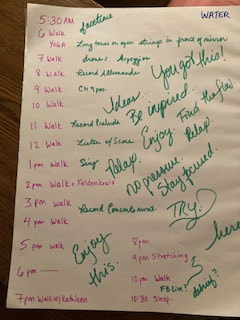 5:30 AM facetime WATER
6 Walk
YOGA Long tones on open strings in front of mirror
7 Walk drones Arpeggios
8 Walk Record Allemande
9 Walk
10 Walk
11 Walk Record Prelude
12 Walk Listen w/Score
1pm Walk Sing
2pm Walk + Feldenkrais
3pm Walk Record Concerto
4pm Walk
5pm Walk
6pm
7pm Walk w/Kathleen
8pm
9pm Stretching
10pm Walk
10:30 Sleep.
You got this!
Ideas
Be inspired.
Enjoy Find the flow
Relax.
Relax.
no pressure
Stay focused.
TRY?
Enjoy
this.
here
FB Live?